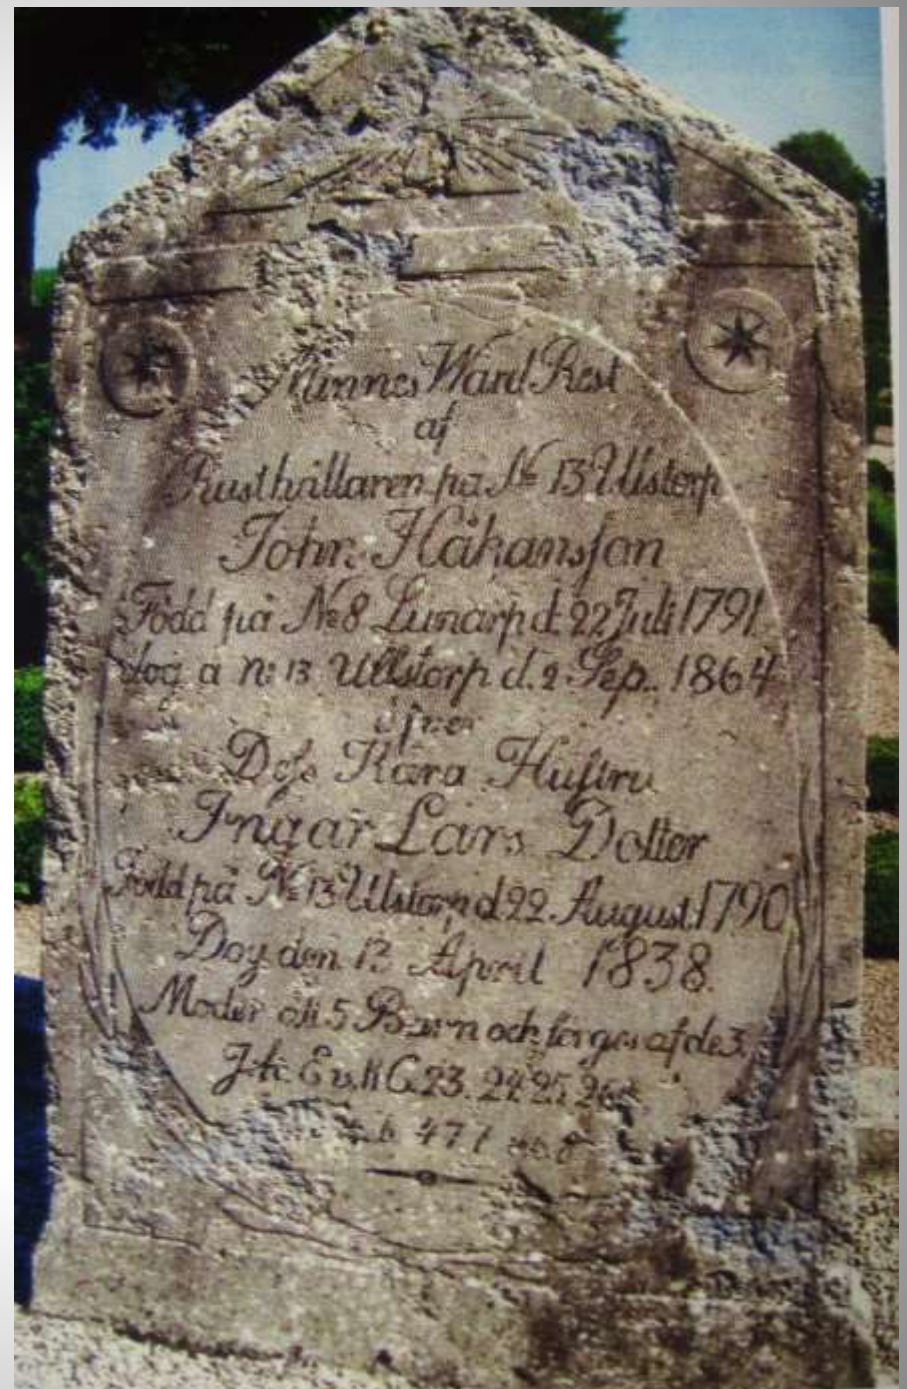 Minnes Wård Rest
af
Rusthållaren på No 13 Ulstorp
John Håkansson
Född på No 8 Lunarp d. 22 Juli 1791
dog a n: 13 Ullstorp d. 2 Sep. 1864
öfver
Dess Kära Hustru
Ingar Lars Dotter
Född på No 13 Ulstorp d 22 August 1790
Dog den 13 April 1838
Moder till 5 Barn och sörges af de 3
Ev. 23. 24. 25. 26
471